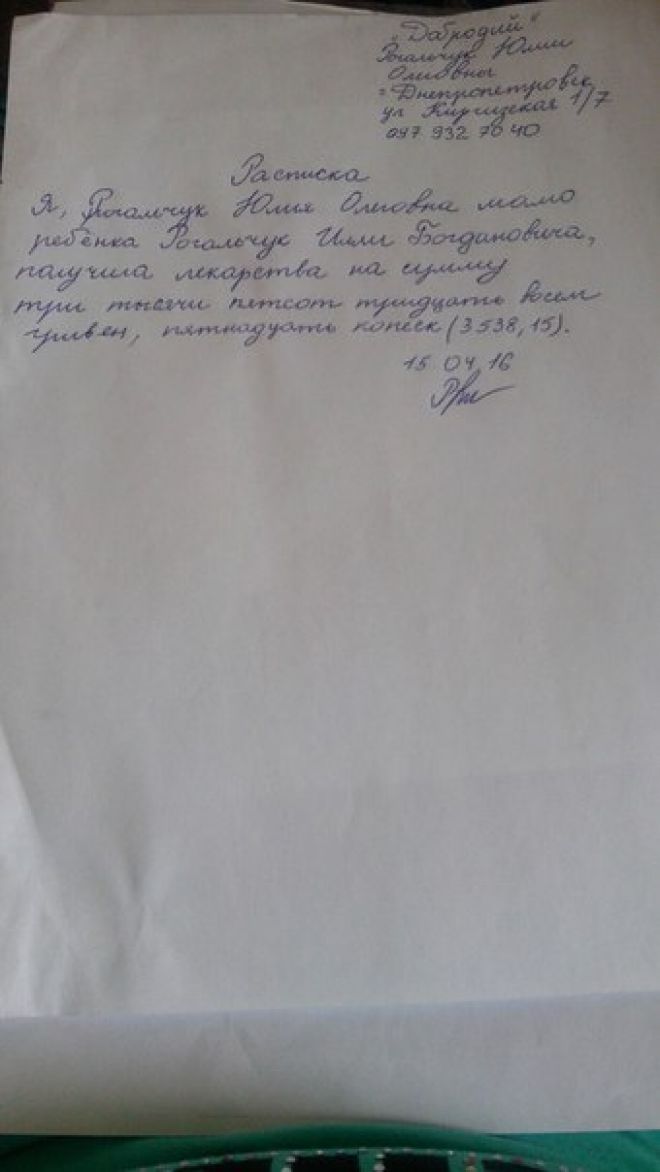 „Добродій"
Рогальчук Юлии
Олеговны
г Днепропетровск
ул Киргизская 1/7
097 932 70 40
Расписка
Я, Рогальчук Юлия Олеговна мама
ребёнка Рогальчук Илли Богдановича,
получила лекарства на сумму
три тысячи пятсот тридцать восем
гривен, пятнадцать копеек (3538,15).
15 04 16